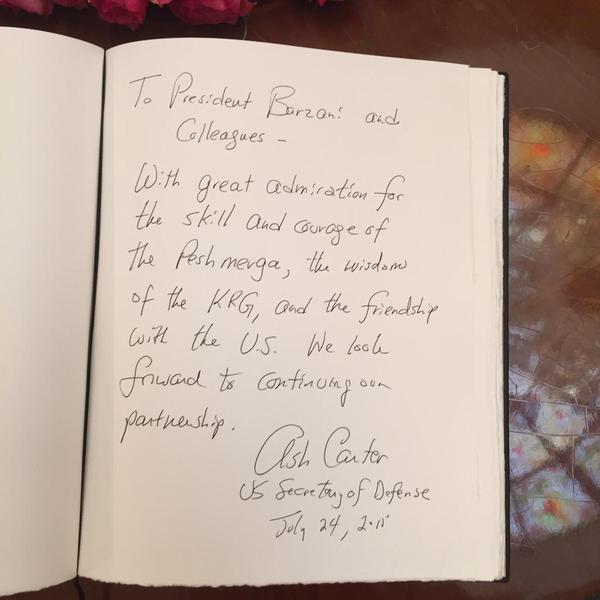 To President Barzani and
Colleagues -
With great admiration for
the skill and courage of
the Peshmerga, the wisdom
of the KRG, and the friendship
with the U.S. We look
forward to continuing our
partnership.
Ash Carter
US Secretary of Defense
July 24, 2015